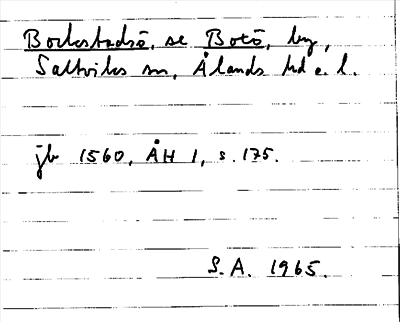 Bockstadsö, se Botö, by,
Saltviks sn, Ålands hd o. l.
jb 1560, ÅH 1, s. 175.
S.A. 1965.